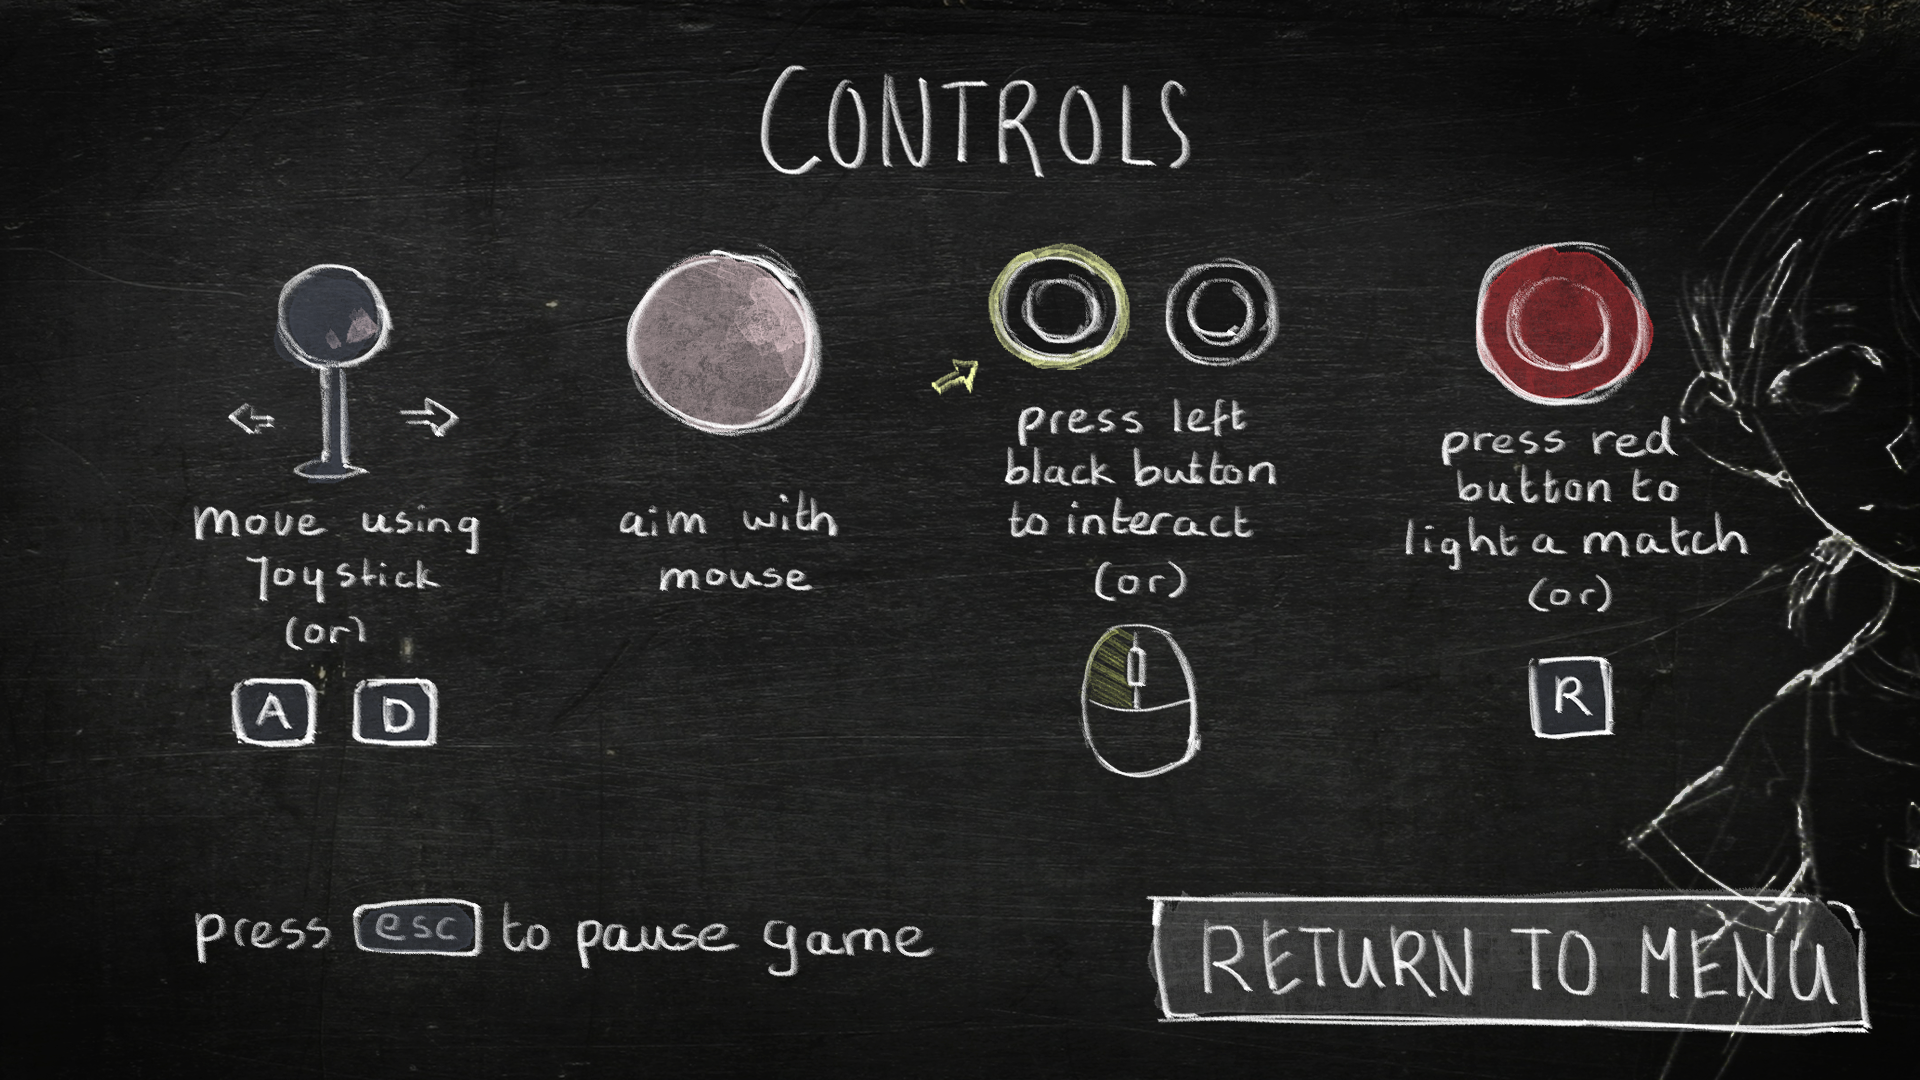 CONTROLS
move using
Joystick
(or)
A D
aim with
mouse
press left
black button
to interact
(or)
press red
button to
light a match
(or)
R
press esc to pause game
RETURN TO MENU